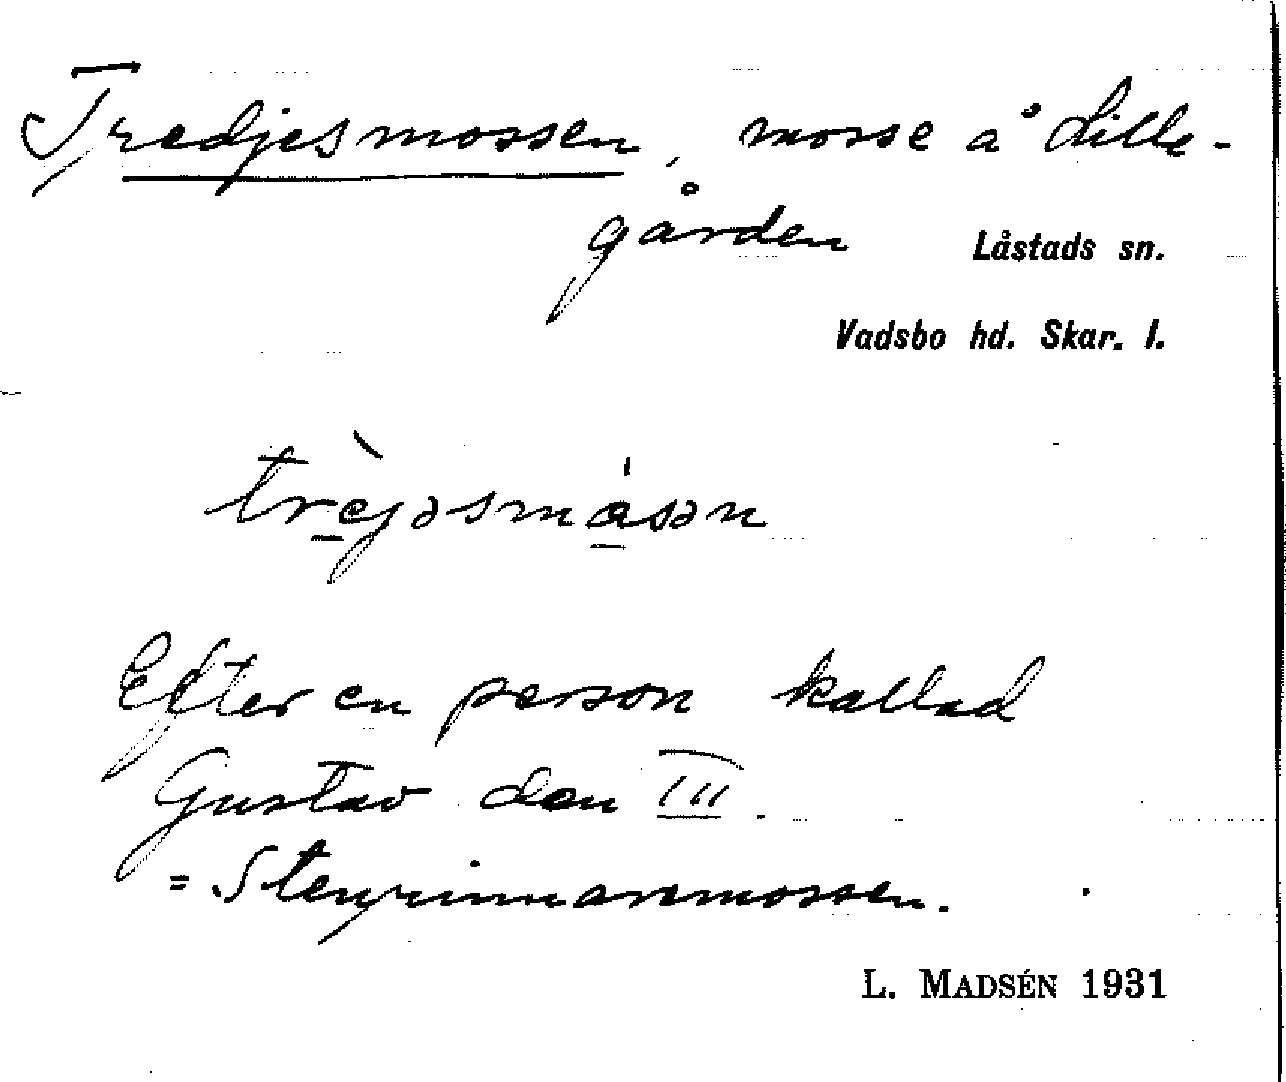 Tredjesmossen, mosse å Lille-
gården
Låstads sn.
Vadsbo hd. Skar. l.
trèjəsmásən
Efter en person kallad
Gustav den III.
=
L. MADSÉN 1931